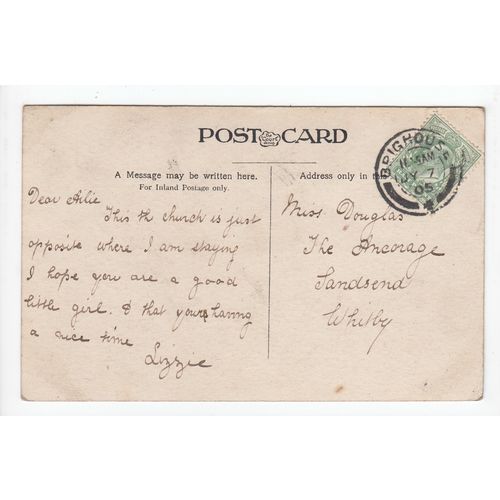 POST CARD
A Message may be written here.
For Inland Postage only.
Address only in this
BRIGHOUS
11.15AM
JY 7
05
4
Dear Ailie
This th church is just
opposite where I am staying
I hope you are a good
little girl. & that yours having
a nice time
Lizzie
Miss Douglas
The Ancorage
Sandsend
Whitby